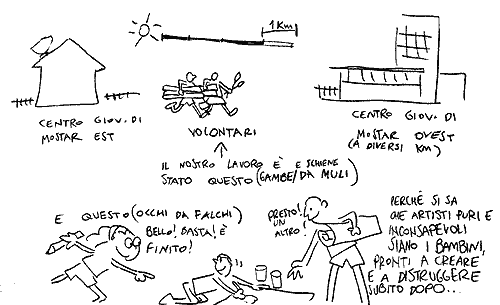 1 Km
CENTRO GIOV. DI
MOSTAR EST
VOLONTARI
CENTRO GIOV. DI
MOSTAR OVEST
(A DIVERSI KM)
IL NOSTRO LAVORO È E SCHIENE
STATO QUESTO (GAMBE/DA MULI)
E QUESTO (OCCHI DA FALCHI)
BELLO! BASTA! È
FINITO!
PRESTO!
UN
ALTRO!
PERCHÉ SI SA
CHE ARTISTI PURI E
INCONSAPEVOLI
SIANO I BAMBINI,
PRONTI A CREARE
E A DISTRUGGERE
SUBITO DOPO...